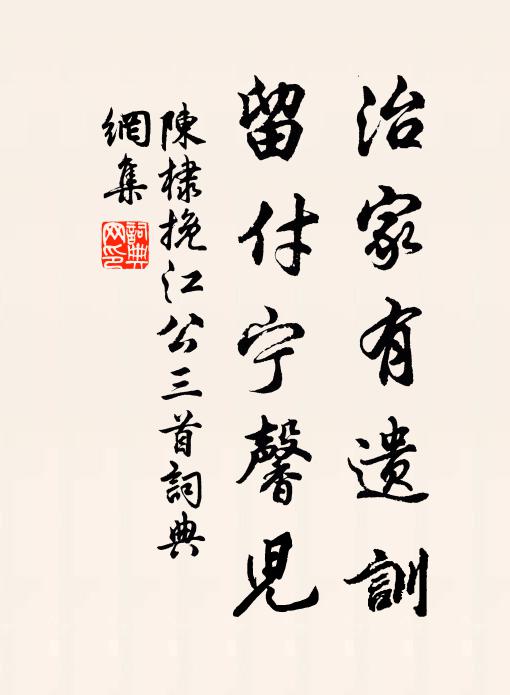 治家有遗訓
留付宁馨児
陳棣挽江公三首詞典
網集
詞典
网印